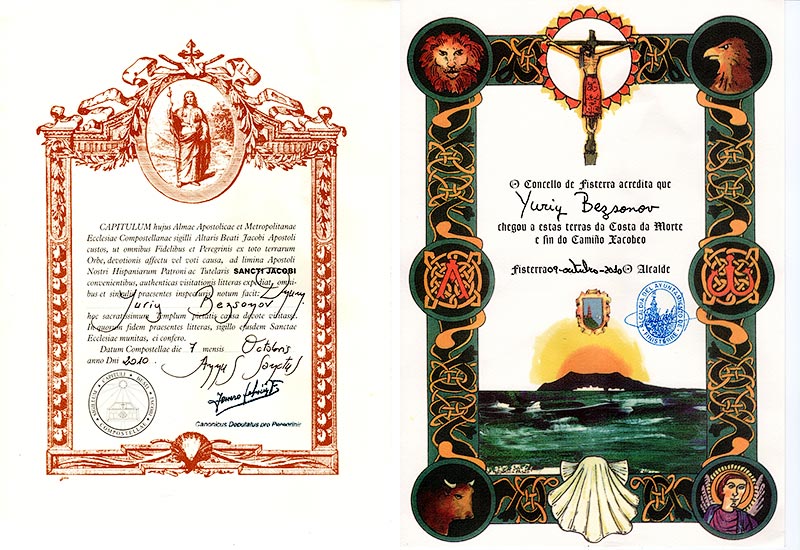 CAPITULUM hujus Almae Apostolicae et Metropolitanae
Ecclesiae Compostellanae sigilli Altaris Beati Jacobi Apostoli
custos, ut omnibus Fidelibus et Peregrinis ex toto terrarum
Orbe, devotionis affectu vel voti causa, ad limina Apostoli
Nostri Hispaniarum Patroni ac Tutelaris SANCTI JACOBI
convenientibus, authenticas visitationis litteras expediat, omni-
bus et singulis praesentes inspecturis notum facit:
Yuriy Bezsonov
hoc sacratissimum Templum pietatis causa devote visitasse.
In quorum fidem praesentes litteras, sigillo ejusdem Sanctae
Ecclesiae munitas, ei confero.
Datum Compostellae die 7 mensis Octobris
anno Dni 2010
Canonicus Deputatus pro Peregrinis
O Concello de Fisterra acredita que
Yuriy Bezsonov
chegou a estas terras da Costa da Morte
e fin do Camiño Xacobeo
Fisterra 09-outubro-2010 O Alcalde
ALCALDIA DEL AYUNTAMIENTO DE
FINISTERRE